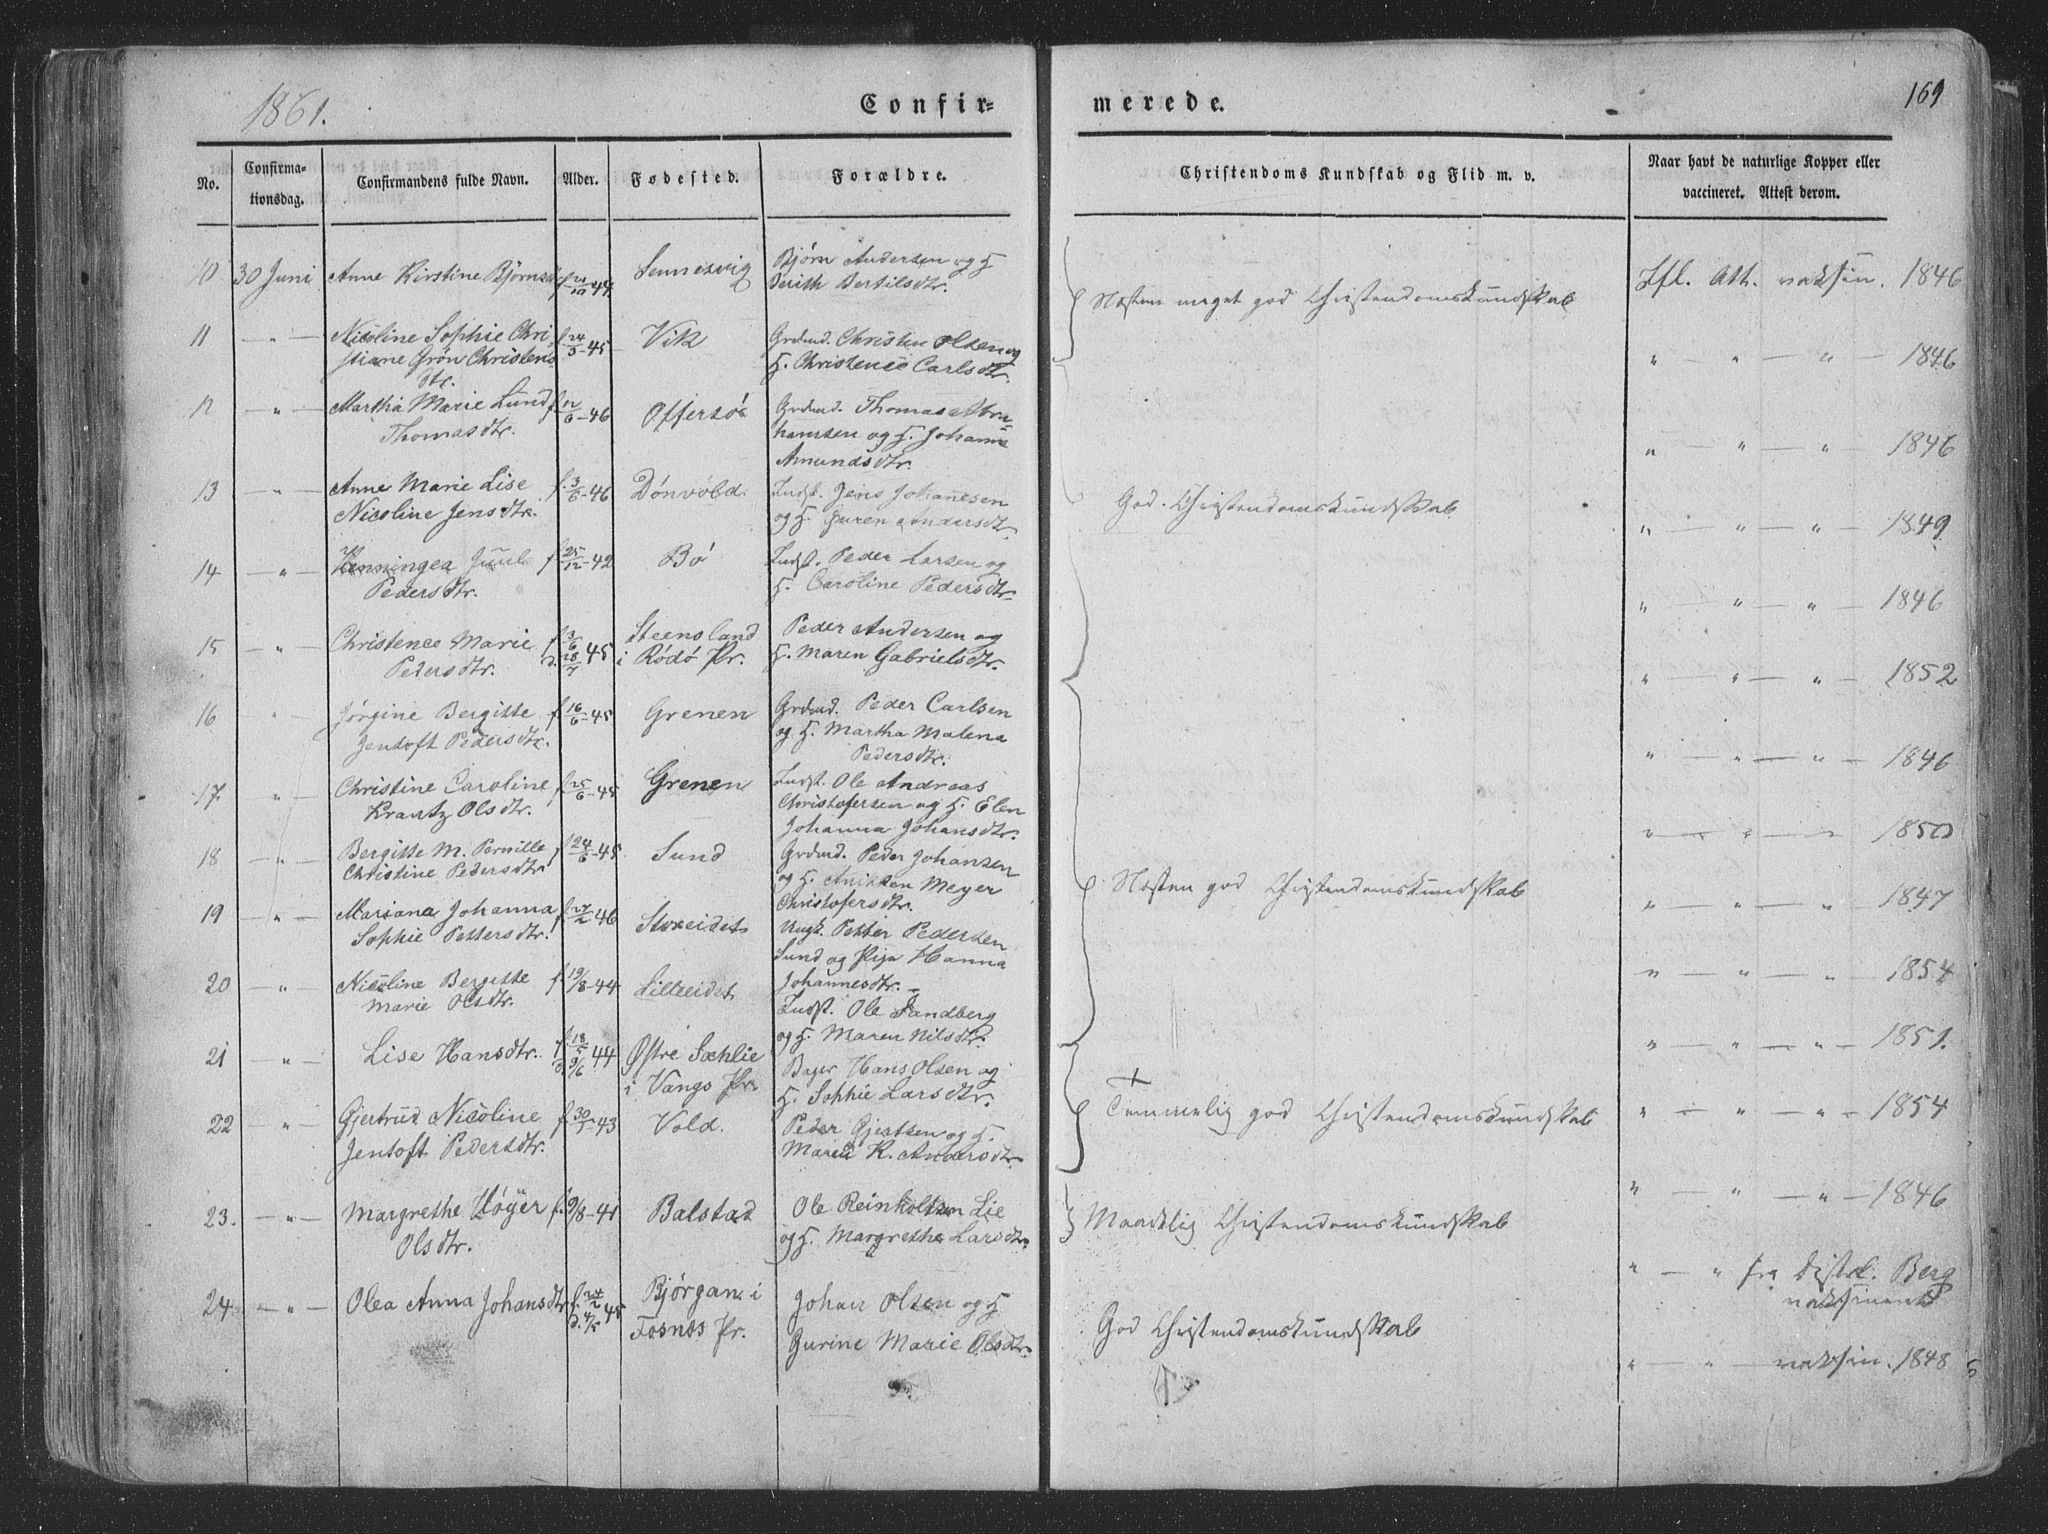 1861.
Confir=
merede.
169
No.
Confirma-
tionsdag.
Confirmandens fulde Navn.
Alder.
Fødested.
Forældre.
Christendoms Kundskab og Flid m. v.
Naar havt de naturlige Kopper eller
vaccineret. Attest derom.
10 30 Juni Anne Kirstine Bjørnsdtr Sennesvig Bjørn Andersen og H.
Berith Bertilsdtr.
Næsten meget god Christendomskundskab
Ifl. Att. vaksin. 1846
11 — " — Nicoline Sophie Chri-
stiane Grön Christens
dtr.
f. 24/3-45 Vik Grdmd. Christen Olsen og
H. Christence Carlsdtr.
" " — " — 1846
12 — " — Martha Marie Lund
Thomasdtr.
f. 12/6-46 Offersö Grdmd. Thomas Abra-
hamsen og H. Johanna
Amundsdtr.
" " — " — 1846
13 — " — Anne Marie Lise
Nicoline Jensdtr.
f. 3/6-46 Dönvold. Indst. Jens Johannesen
og H. Guren Andersdtr.
God Christendomskundskab
" " — " — 1849
14 — " — Henningea Juul
Pedersdtr.
f. 25/12-42 Bö Indst. Peder Larsen og
H. Caroline Pedersdtr.
" — " — " — 1846
15 — " — Christence Marie
Pedersdtr.
f. 3/6 d. 28/7 45 Steensland
i Rödö Pr.
Peder Andersen og
H. Maren Gabrielsdtr.
" — " — " — 1852
16 " Jörgine Bergitte
Jentoft Pedersdtr.
f. 16/6-45 Grenen Grdmd. Peder Carlsen
og H. Martha Malena
Pedersdtr.
" — " — " — 1846
17 " Christine Caroline
Krantz Olsdtr.
f. 25/6-45 Grenen Indst. Ole Andreas
Christofersen og H. Elen
Johanna Johansdtr.
" — " — " — 1850
18 — " — Bergitte M. Pernille
Christine Pedersdtr.
f. 24/6-45 Sund Grdmd. Peder Johansen
og H. Anikken Meyer
Christofersdtr.
Næsten god Christendomskundskab
" — " — " — 1847
19 — " — Mariana Johanna
Sophie Pettersdtr.
f. 27/2-46 Storeidet Ungk. Petter Pedersen
Sund og Pige Hanna
Johannesdtr. —
" — " — " — 1854
20 — " — Nicoline Bergitte
Marie Olsdtr.
f. 19/8-44 Lilleeidet Indst. Ole Sandberg
og H. Maren Nilsdtr.
" — " — " — 1851.
21 — " — Lise Hansdtr. f. 18/5 d. 9/6 44 Østre Sælie
i Vangs Pr.
Hans Olsen og
H. Sophie Larsdtr.
Temmelig god Christendomskundskab
" — " — " — 1854
22 — " — Gjertrud Nicoline
Jentoft Pedersdtr.
Vold. Peder Gjertsen og H.
Maren K. Andersdtr.
" — " — " — 1846
23. — " — Margrethe Höyer
Olsdtr.
f. 9/8-41 Balstad Ole Reinholtsen Lie
og H. Margrethe Larsdtr.
Maadelig Christendomskundskab
" — " fra Distrl. Berg
vaksineret
24. — " — Olea Anna Johansdtr f. 24/2 d. 4/5 45 Bjørgan i
Fosnes Pr.
Johan Olsen og H
Gurine Marie Olsdtr.
God Christendomskundskab
" — " — vaksin. 1848